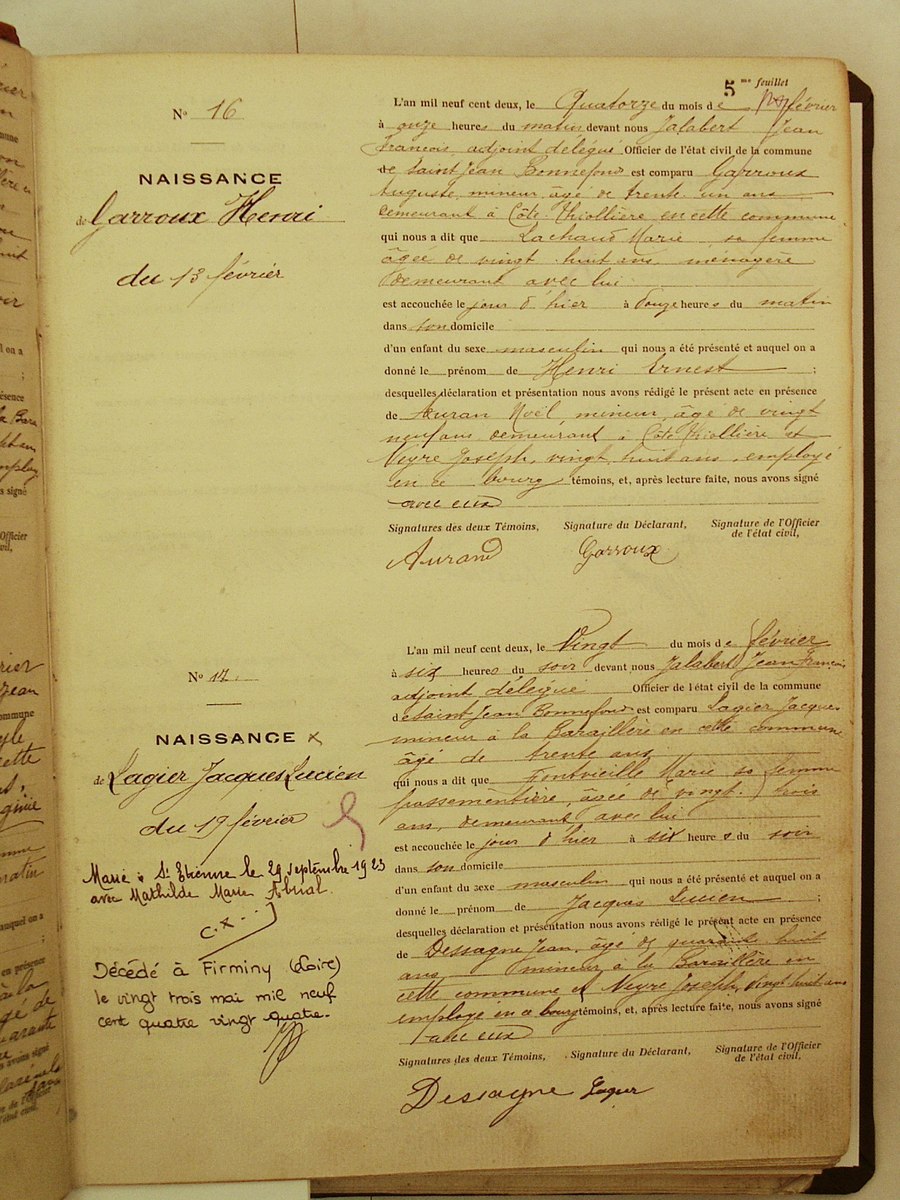 5 me feuillet
N° 16
NAISSANCE
de Garroux Henri
du 13 février
L'an mil neuf cent deux, le Quatorze du mois de février
à onze heures du matin devant nous Jalabert Jean
François, adjoint délégué Officier de l'état civil de la commune
de Saint Jean Bonnefond est comparu Garroux
Auguste, mineur, âgé de trente un ans
demeurant à Côte-Thiollière en cette commune
qui nous a dit que Lachaud Marie, sa femme
âgée de vingt huit ans, ménagère
demeurant avec lui
est accouchée le jour d'hier à douze heures du matin
dans son domicile
d'un enfant du sexe masculin qui nous a été présenté et auquel on a
donné le prénom de Henri Ernest ;
desquelles déclaration et présentation nous avons rédigé le présent acte en présence
de Auran Noël, mineur, âgé de vingt
neuf ans, demeurant à Côte Thiollière et
Neyre Joseph, vingt huit ans, employé
en ce bourg témoins, et, après lecture faite, nous avons signé
avec eux
Signatures des deux Témoins, Signature du Déclarant, Signature de l'Officier
de l'état civil,
Aurand Garroux
N° 17.
NAISSANCE x
de Lagier Jacques Lucien
du 19 février
Marié à St Etienne le 29 septembre 1923
avec Mathilde Marie Abrial.
Décédé à Firminy (Loire)
le vingt trois mai mil neuf
cent quatre vingt quatre.
L'an mil neuf cent deux, le Vingt du mois de février
à six heures du soir devant nous Jalabert Jean François
adjoint délégué Officier de l'état civil de la commune
de Saint Jean Bonnefond est comparu Lagier Jacques
mineur à la Baraillère en cette commune
âgé de trente ans
qui nous a dit que Fontvieille Marie sa femme
passementière, âgée de vingt trois
ans, demeurant avec lui
est accouchée le jour d'hier à six heures du soir
dans son domicile
d'un enfant du sexe masculin qui nous a été présenté et auquel on a
donné le prénom de Jacques Lucien ;
desquelles déclaration et présentation nous avons rédigé le présent acte en présence
de Dessagne Jean, âgé de quarante huit
ans mineur, à la Baraillère en
cette commune et Neyre Joseph, vingt huit ans
employé en ce bourg témoins, et, après lecture faite, nous avons signé
avec eux
Signatures des deux Témoins, Signature du Déclarant, Signature de l'Officier
de l'état civil,
Dessagne Lagier